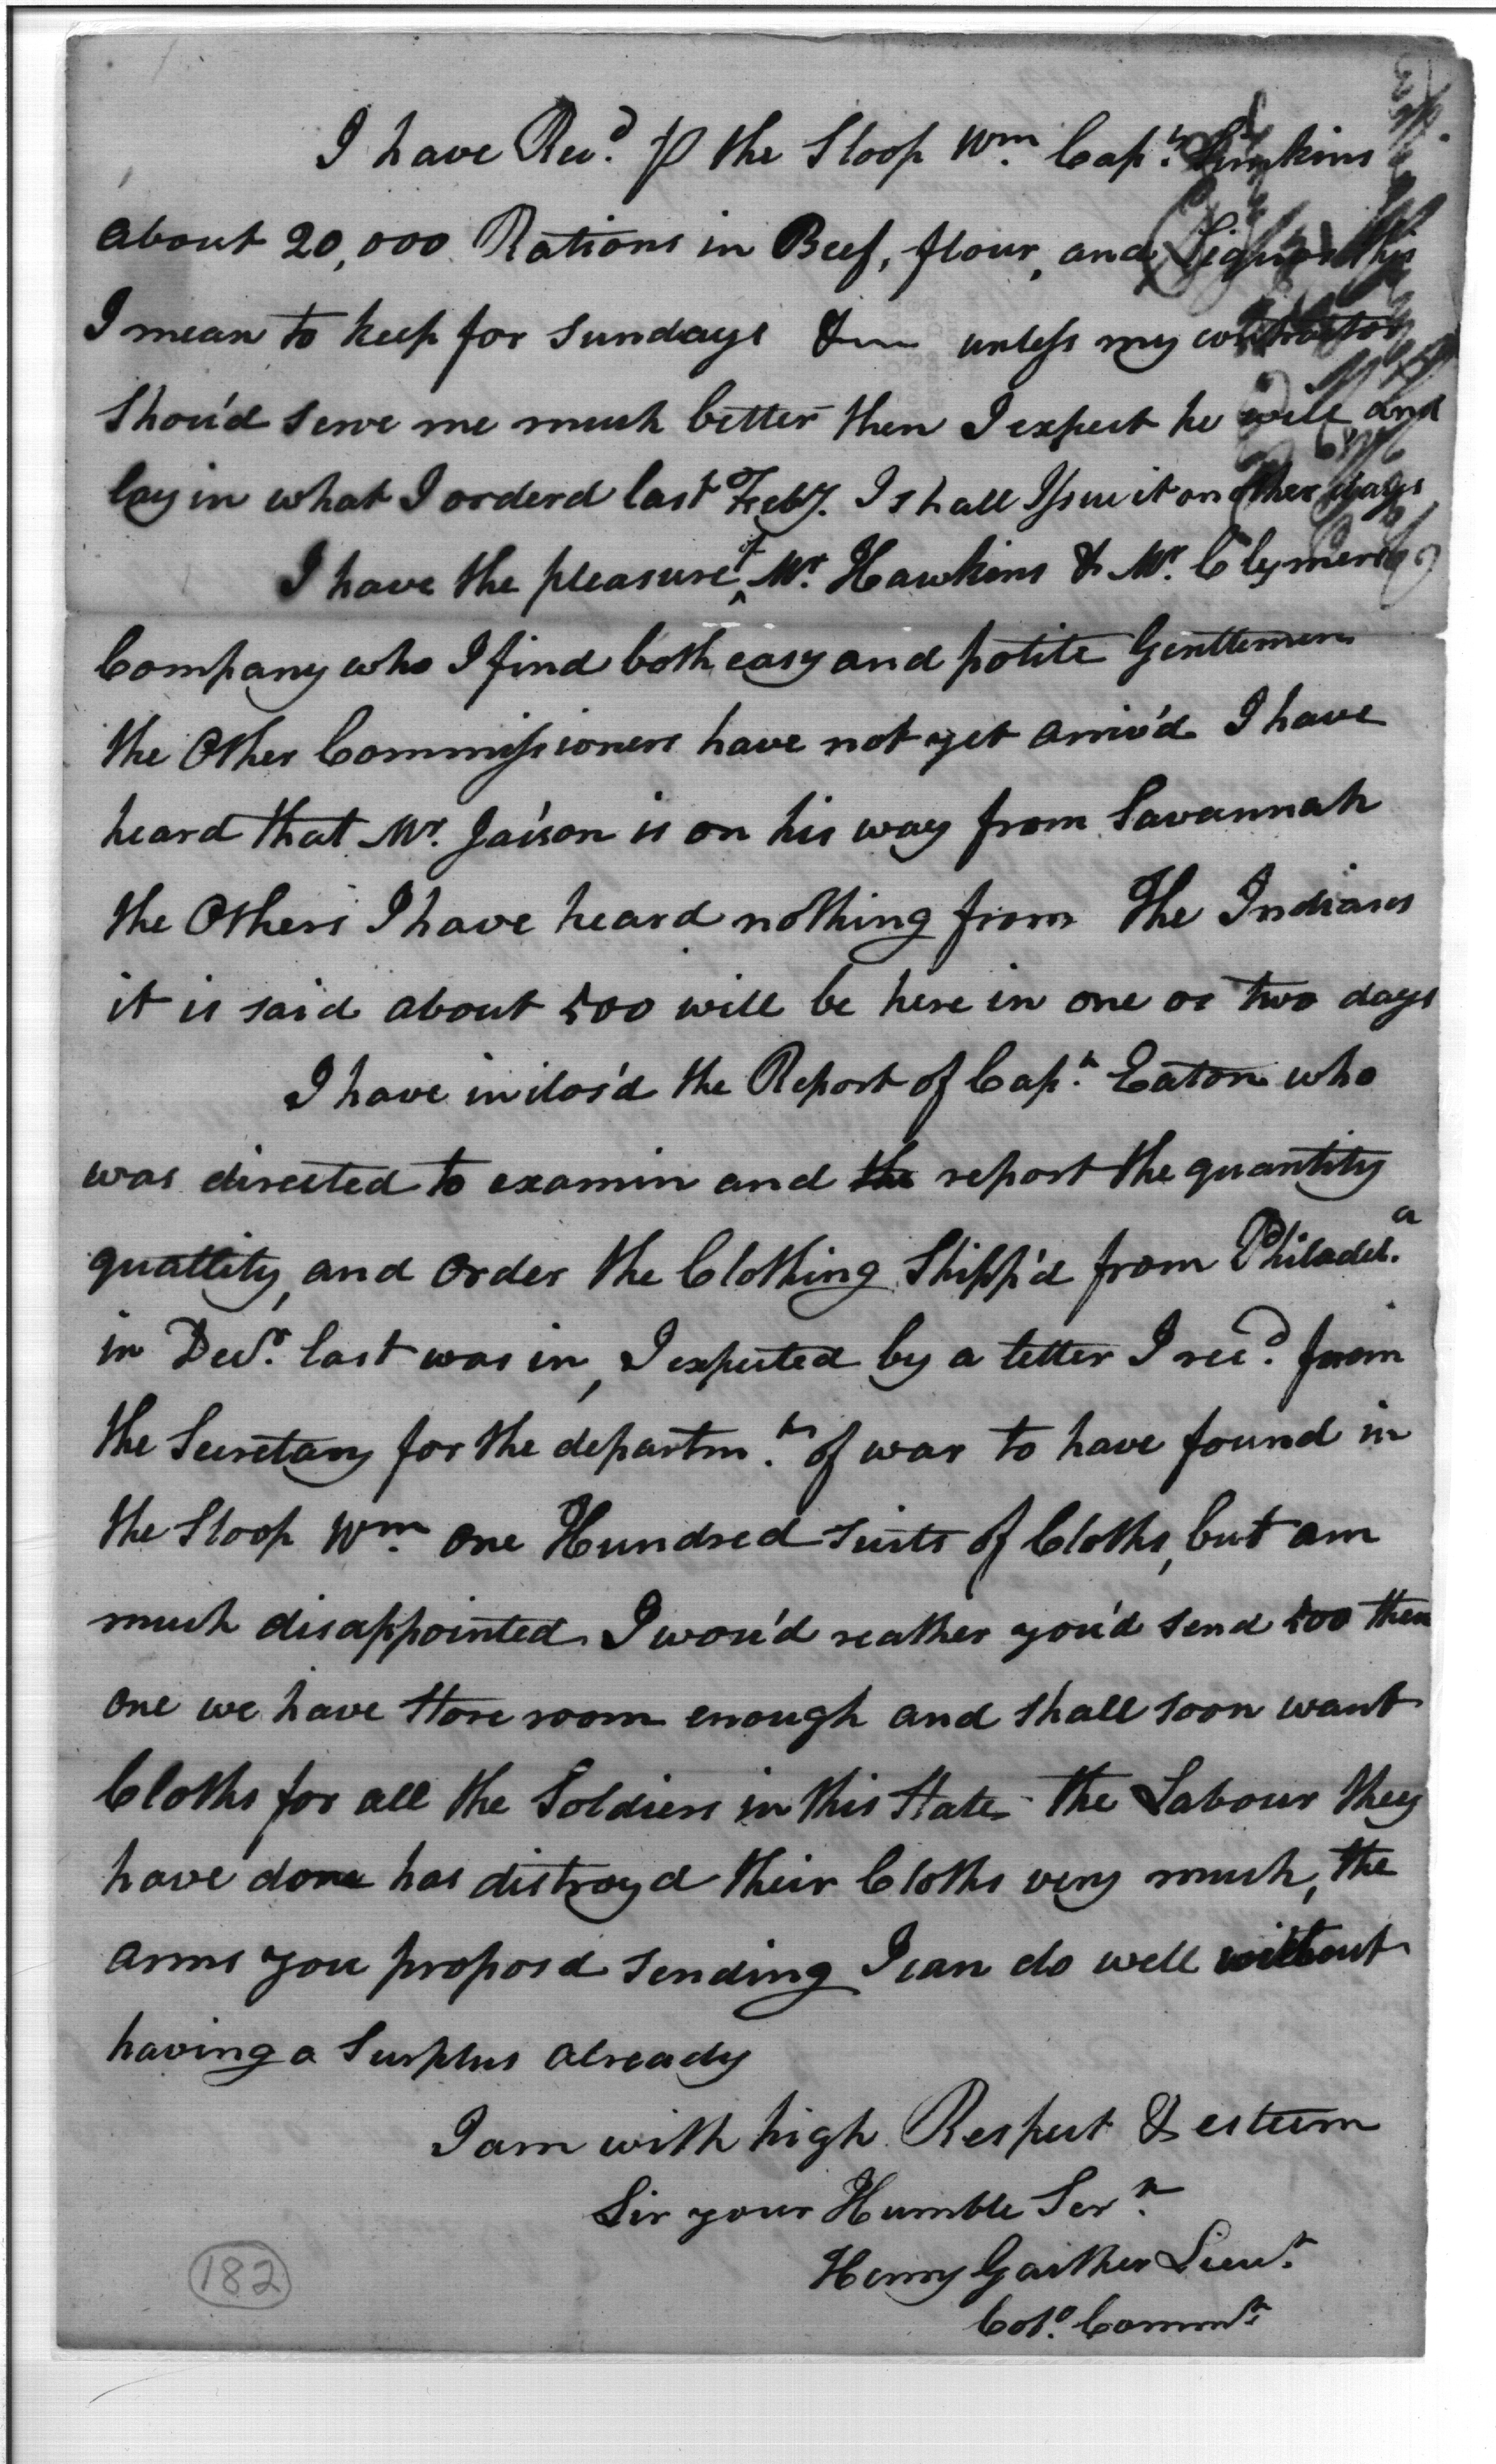 I have Rec.d p the Sloop Wm. Cap.t Simkins
about 20,000 Rations in Beef, flour, and Liquor this
I mean to keep for Sundays &c unless my contractor
Shou'd serve me much better then I expect he will and
lay in what I orderd last Feby. I shall Issue it on other days
I have the pleasure of Mr. Hawkins & Mr. Clymers
Company who I find both easy and polite Gentlemen
the Other Commissioners have not yet arriv'd I have
heard that Mr. is on his way from Savannah
the Others I have heard nothing from The Indians
it is said about 500 will be here in one or two days
I have inclos'd the Report of Cap.t Eaton who
was directed to examin and the report the quantity
quallity, and order the Clothing Shipp'd from Philadel.a
in Decr. last was in, I expected by a letter I rec.d from
the Secretary for the departm.t of war to have found in
the Sloop Wm. one Hundred suits of Cloths, but am
much disappointed I wou'd reather you'd send 500 then
one we have Store room enough and shall soon want
Cloths for all the Soldiers in this State the Labour they
have done has distroyd their Cloths very much, the
arms you proposd sending I can do well without
having a Surplus already
I am with high Respect & esteem
Sir your Humble Ser.t
Henry Gaither Lieu.t
Col.o Comm.t
182